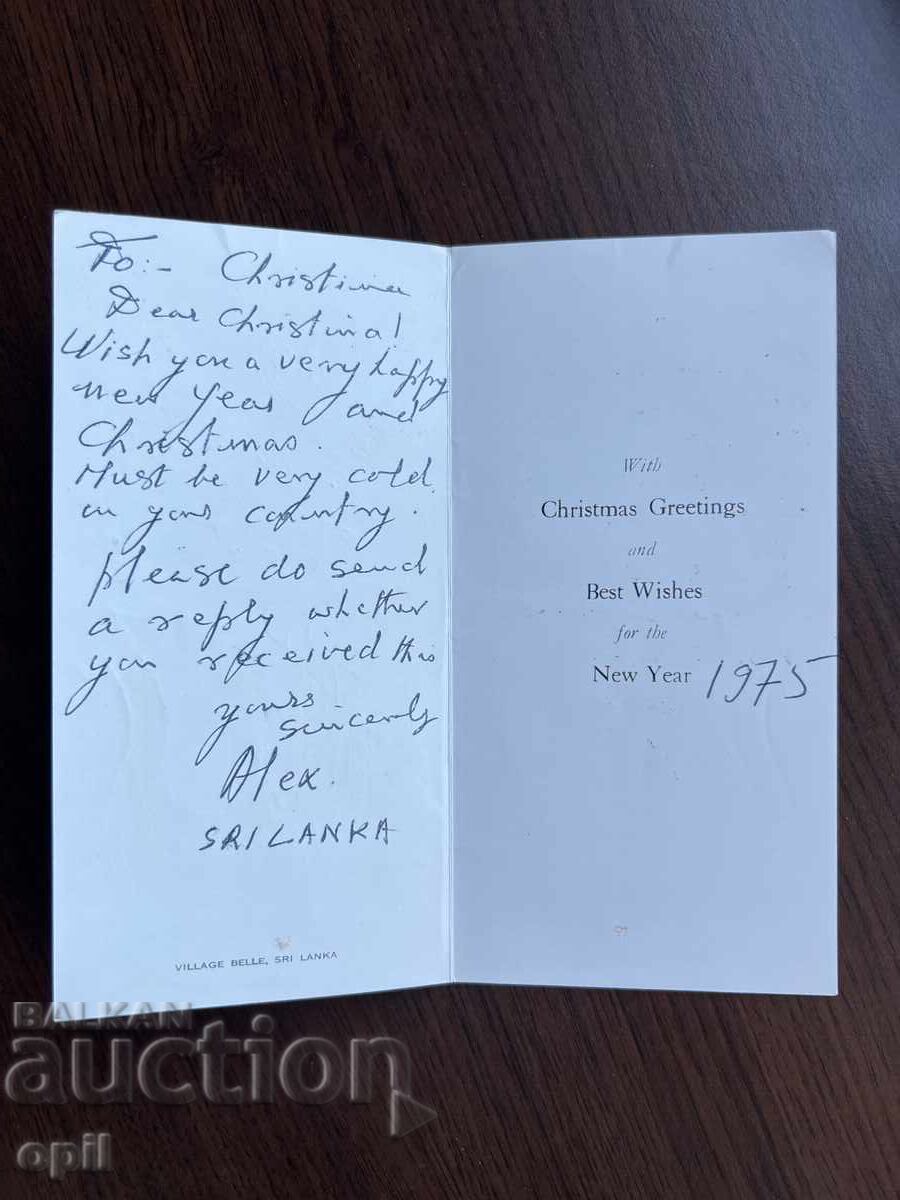 To:- Christina
Dear Christina!
Wish you a very happy
new year and
Christmas.
Must be very cold
in your country.
please do send
a reply whether
you received this
yours
sincerely
Alex.
SRI LANKA
VILLAGE BELLE, SRI LANKA
With
Christmas Greetings
and
Best Wishes
for the
New Year 1975
BALKAN
auction
opil